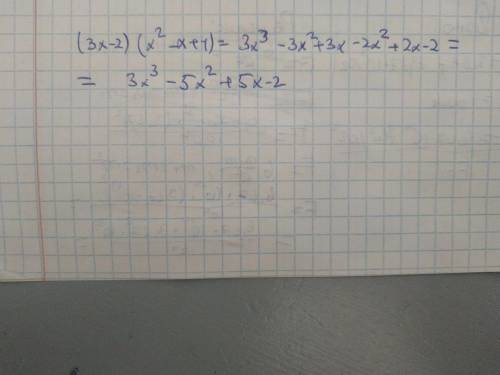 (3x-2)(x²-x+1)= 3x³-3x²+3x-2x²+2x-2=
= 3x³-5x²+5x-2